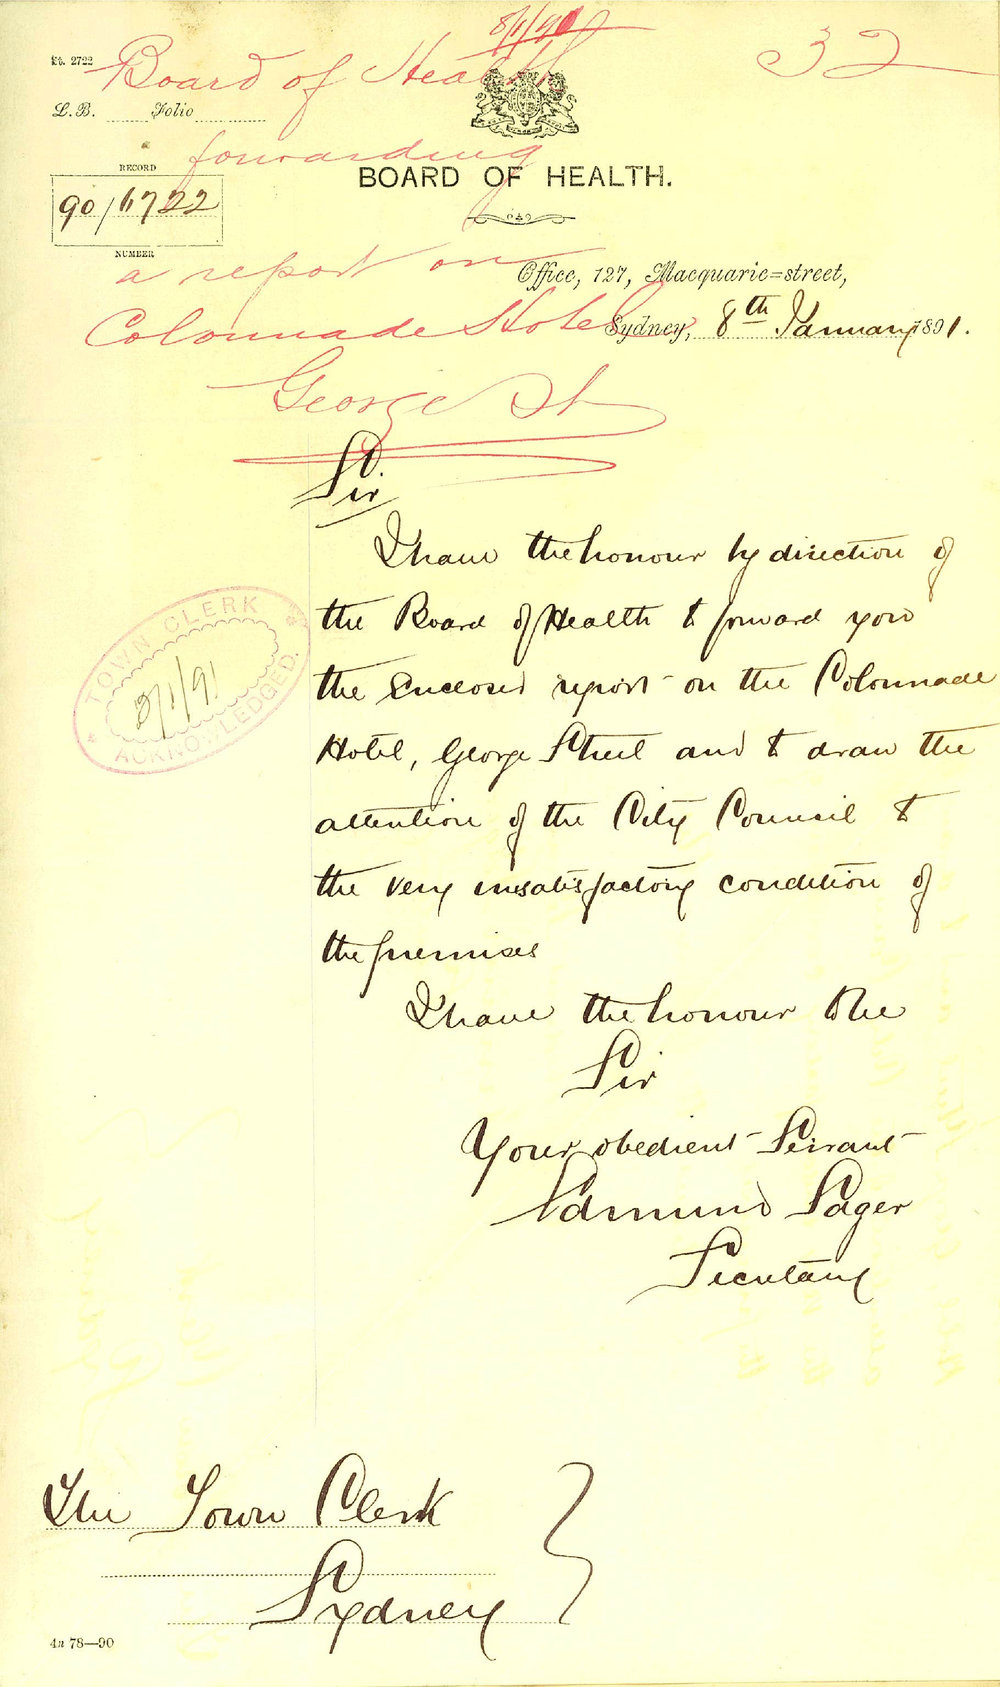 8/1/91
32
St. 2722
Board of Health
L.B. Folio
forwarding
RECORD
90/6722
NUMBER
BOARD OF HEALTH.
a report on
Office, 127, Macquarie=street,
Colonnade Hotel
Sydney, 8th January 1891.
George St
Sir
I have the honour by direction of
the Board of Health to forward you
the enclosed report on the Colonnade
Hotel, George Street and to draw the
attention of the City Council to
the very unsatisfactory condition of
the premises
I have the honour to be
Sir
Your obedient Servant
Edmund Sager
Secretary
TOWN CLERK
/1/91
ACKNOWLEDGED.
The Town Clerk
Sydney
4a 78—90